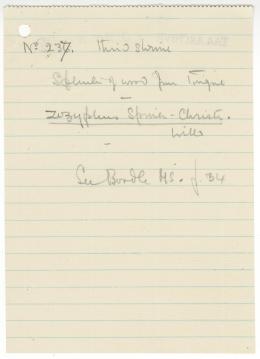 No 237. third shrine
Splinter of wood from Tongue
–
Zizyphus Spina-Christi.
Willd
See Boodle MS. p. 34